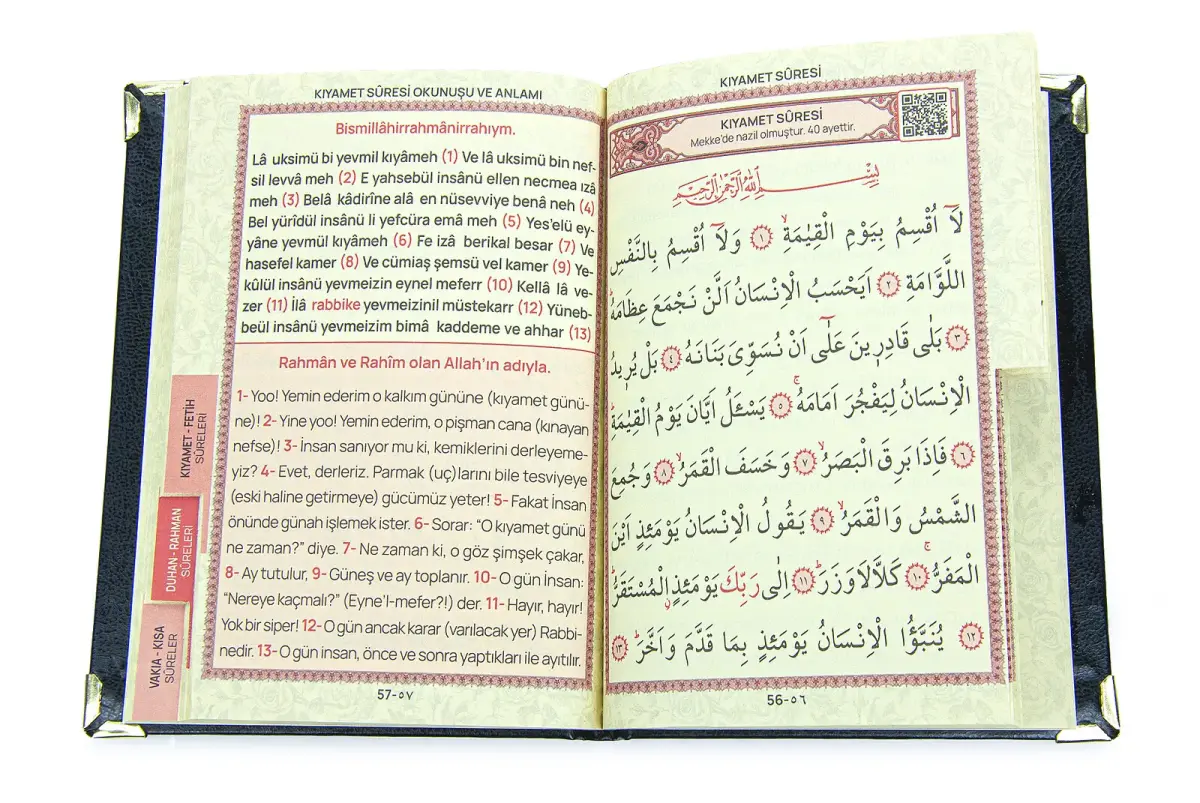 KIYAMET SÛRESİ OKUNUŞU VE ANLAMI
Bismillâhirrahmânirrahıym.
Lâ uksimü bi yevmil kıyâmeh (1) Ve lâ uksimü bin nef-
sil levvâ meh (2) E yahsebül insânü ellen necmea ızâ
meh (3) Belâ kâdirîne alâ en nüsevviye benâ neh (4)
Bel yürîdül insânü li yefcüra emâ meh (5) Yes'elü ey-
yâne yevmül kıyâmeh (6) Fe izâ berikal besar (7) Ve
hasefel kamer (8) Ve cümiaş şemsü vel kamer (9) Ye-
kûlül insânü yevmeizin eynel meferr (10) Kellâ lâ ve-
zer (11) İlâ rabbike yevmeizinil müstekarr (12) Yüneb-
beül insânü yevmeizim bimâ kaddeme ve ahhar (13)
Rahmân ve Rahîm olan Allah'ın adıyla.
1- Yoo! Yemin ederim o kalkım gününe (kıyamet günü-
ne)! 2- Yine yoo! Yemin ederim, o pişman cana (kınayan
nefse)! 3- İnsan sanıyor mu ki, kemiklerini derleyeme-
yiz? 4- Evet, derleriz. Parmak (uç)larını bile tesviyeye
(eski haline getirmeye) gücümüz yeter! 5- Fakat İnsan
önünde günah işlemek ister. 6- Sorar: "O kıyamet günü
ne zaman?" diye. 7- Ne zaman ki, o göz şimşek çakar,
8- Ay tutulur, 9- Güneş ve ay toplanır. 10- O gün İnsan:
"Nereye kaçmalı?" (Eyne'l-mefer?!) der. 11- Hayır, hayır!
Yok bir siper! 12- O gün ancak karar (varılacak yer) Rabbi-
nedir. 13- O gün insan, önce ve sonra yaptıkları ile ayıtılır.
57-٥٧
KIYAMET - FETİH
SÛRELERİ
DUHAN - RAHMAN
SÛRELERİ
VAKIA - KISA
SÛRELER
KIYAMET SÛRESİ
KIYAMET SÛRESİ
Mekke'de nazil olmuştur. 40 ayettir.
بِسْمِ اللّٰهِ الرَّحْمٰنِ الرَّحِيمِ
لَٓا اُقْسِمُ بِيَوْمِ الْقِيٰمَةِۙ ﴿١﴾ وَلَٓا اُقْسِمُ بِالنَّفْسِ
اللَّوَّامَةِ ﴿٢﴾ اَيَحْسَبُ الْاِنْسَانُ اَلَّنْ نَجْمَعَ عِظَامَهُۜ
﴿٣﴾ بَلٰى قَادِرٖينَ عَلٰٓى اَنْ نُسَوِّيَ بَنَانَهُ ﴿٤﴾ بَلْ يُرٖيدُ
الْاِنْسَانُ لِيَفْجُرَ اَمَامَهُۚ ﴿٥﴾ يَسْـَٔلُ اَيَّانَ يَوْمُ الْقِيٰمَةِۜ
﴿٦﴾ فَاِذَا بَرِقَ الْبَصَرُۙ ﴿٧﴾ وَخَسَفَ الْقَمَرُۙ ﴿٨﴾ وَجُمِعَ
الشَّمْسُ وَالْقَمَرُۙ ﴿٩﴾ يَقُولُ الْاِنْسَانُ يَوْمَئِذٍ اَيْنَ
الْمَفَرُّۚ ﴿١٠﴾ كَلَّا لَا وَزَرَۜ ﴿١١﴾ اِلٰى رَبِّكَ يَوْمَئِذٍۨ الْمُسْتَقَرُّۜ
﴿١٢﴾ يُنَبَّؤُا الْاِنْسَانُ يَوْمَئِذٍ بِمَا قَدَّمَ وَاَخَّرَۜ ﴿١٣﴾
56-٥٦